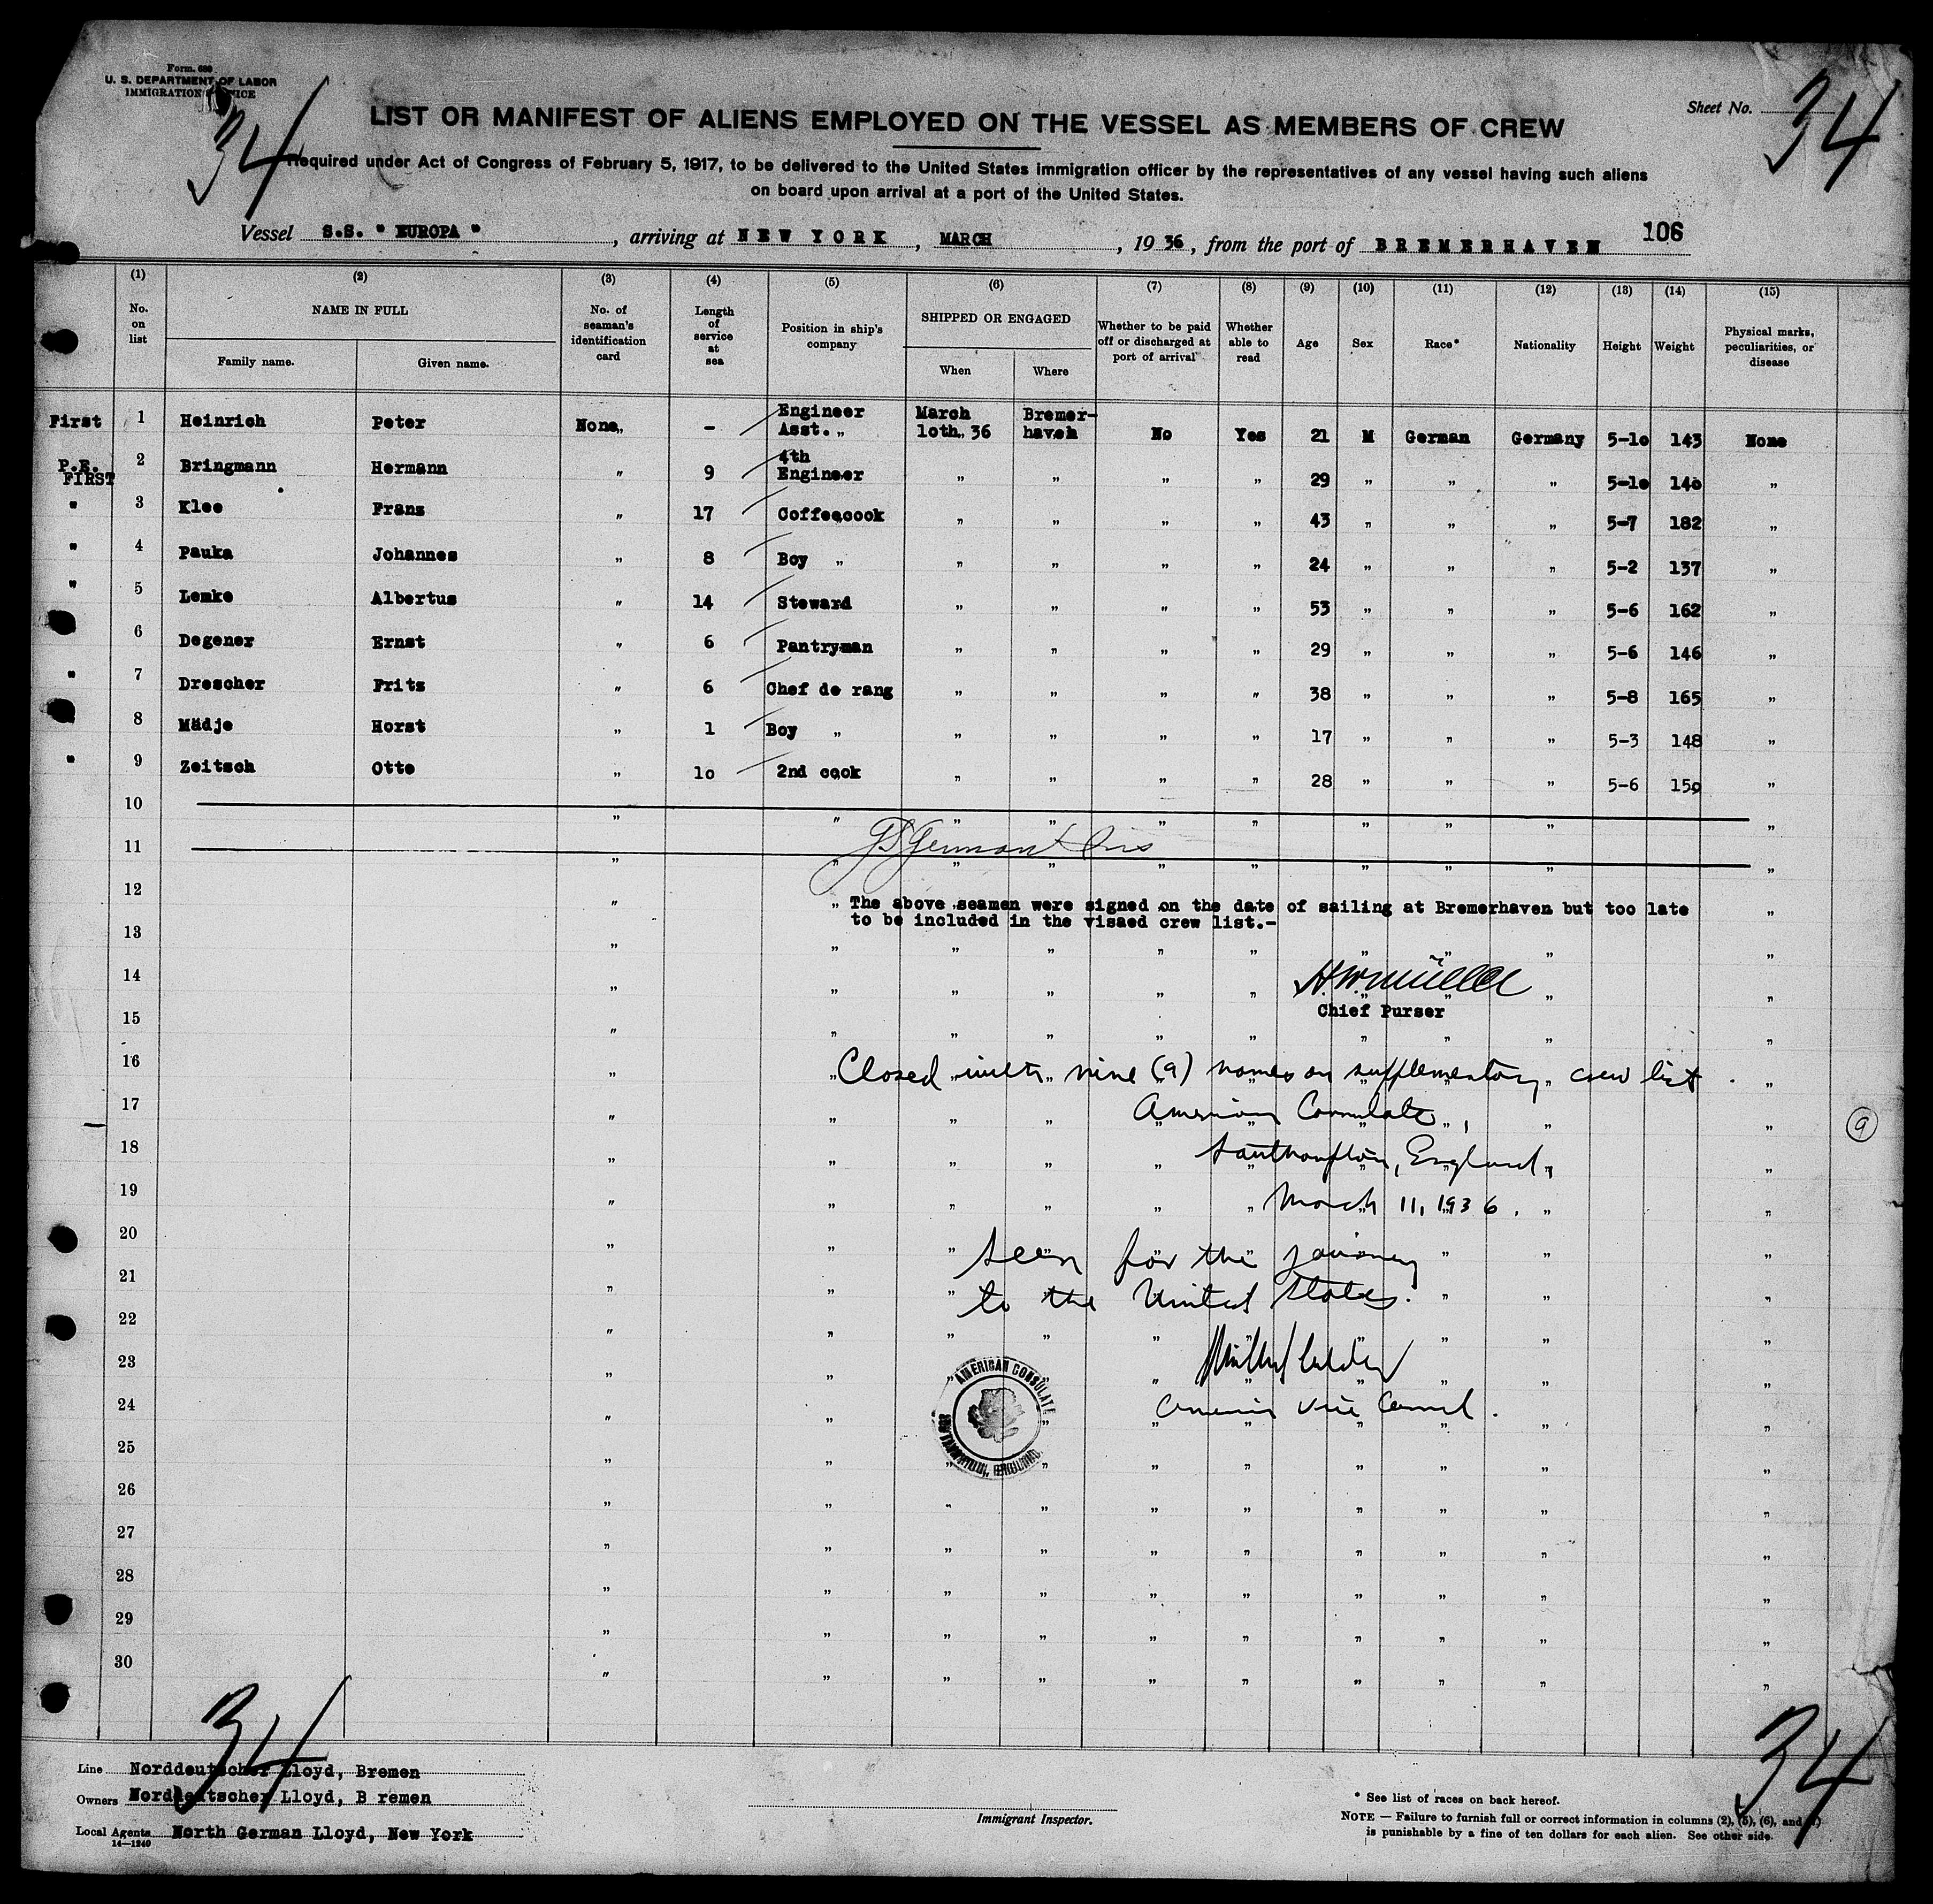 Form. 680
U. S. DEPARTMENT OF LABOR
IMMIGRATION SERVICE
34
34
Sheet No.
LIST OR MANIFEST OF ALIENS EMPLOYED ON THE VESSEL AS MEMBERS OF CREW
Required under Act of Congress of February 5, 1917, to be delivered to the United States immigration officer by the representatives of any vessel having such aliens
on board upon arrival at a port of the United States.
106
Vessel S.S. " EUROPA ", arriving at NEW YORK, MARCH, 19 36, from the port of BREMERHAVEN
(1) (2) (3) (4) (5) (6) (7) (8) (9) (10) (11) (12) (13) (14) (15)
No. on list NAME IN FULL Family name. Given name. No. of seaman's identification card Length of service at sea Position in ship's company SHIPPED OR ENGAGED When Where Whether to be paid off or discharged at port of arrival Whether able to read Age Sex Race* Nationality Height Weight Physical marks, peculiarities, or disease
First 1 Heinrich Peter None„ - Engineer Asst. „ March 10th. 36 Bremer-haven No Yes 21 M German Germany 5-10 143 None
P.E. FIRST 2 Bringmann Hermann „ 9 4th Engineer „ „ „ „ 29 „ „ „ 5-10 140 „
" 3 Klee Franz „ 17 Coffeecook „ „ „ „ 43 „ „ „ 5-7 182 „
" 4 Pauka Johannes „ 8 Boy „ „ „ „ „ 24 „ „ „ 5-2 137 „
" 5 Lemke Albertus „ 14 Steward „ „ „ „ 53 „ „ „ 5-6 162 „
6 Degener Ernst „ 6 Pantryman „ „ „ „ 29 „ „ „ 5-6 146 „
" 7 Drescher Fritz „ 6 Chef de rang „ „ „ „ 38 „ „ „ 5-8 165 „
8 Mädje Horst „ 1 Boy „ „ „ „ „ 17 „ „ „ 5-3 148 „
" 9 Zeitsch Otto „ 10 2nd cook „ „ „ „ 28 „ „ „ 5-6 150 „
10 „ „ „ „ „ „ „ „ „ „
11 „ „ „ „ „ „ „ „ „
12 „ „ The above seamen were signed on the date of sailing at Bremerhaven but too late „
to be included in the visaed crew list.-
13 „ „ „ „ „ „ „ „ „ „
14 „ „ „ „ „ „ H.W. Müller „ „
15 Chief Purser
„ „ „ „ „ „ „ „ „ „
16 „ „ Closed with nine (9) names on supplementary crew list. „
17 „ „ „ „ American Consulate, „ „
9
18 „ „ „ „ „ Southampton, England, „
19 „ „ „ „ „ „ March 11, 1936. „ „
20 „ „ „ Seen for the journey „ „ „
21 „ „ „ to the United States. „ „ „
22 „ „ „ „ „ „ „ „ „ „
23 „ „ „ „ „ „ „ „
24 „ „ „ „ American Vice Consul. „ „
AMERICAN CONSULATE
SOUTHAMPTON, ENGLAND.
25 „ „ „ „ „ „ „ „ „ „
26 „ „ „ „ „ „ „ „ „ „
27 „ „ „ „ „ „ „ „ „ „
28 „ „ „ „ „ „ „ „ „ „
29 „ „ „ „ „ „ „ „ „ „
30 „ „ „ „ „ „ „ „ „ „
34
34
Line Norddeutscher Lloyd, Bremen
Owners Norddeutscher Lloyd, B remen
Local Agents North German Lloyd, New York
14—1240
Immigrant Inspector.
* See list of races on back hereof.
NOTE — Failure to furnish full or correct information in columns (2), (5), (6), and (7)
is punishable by a fine of ten dollars for each alien. See other side.